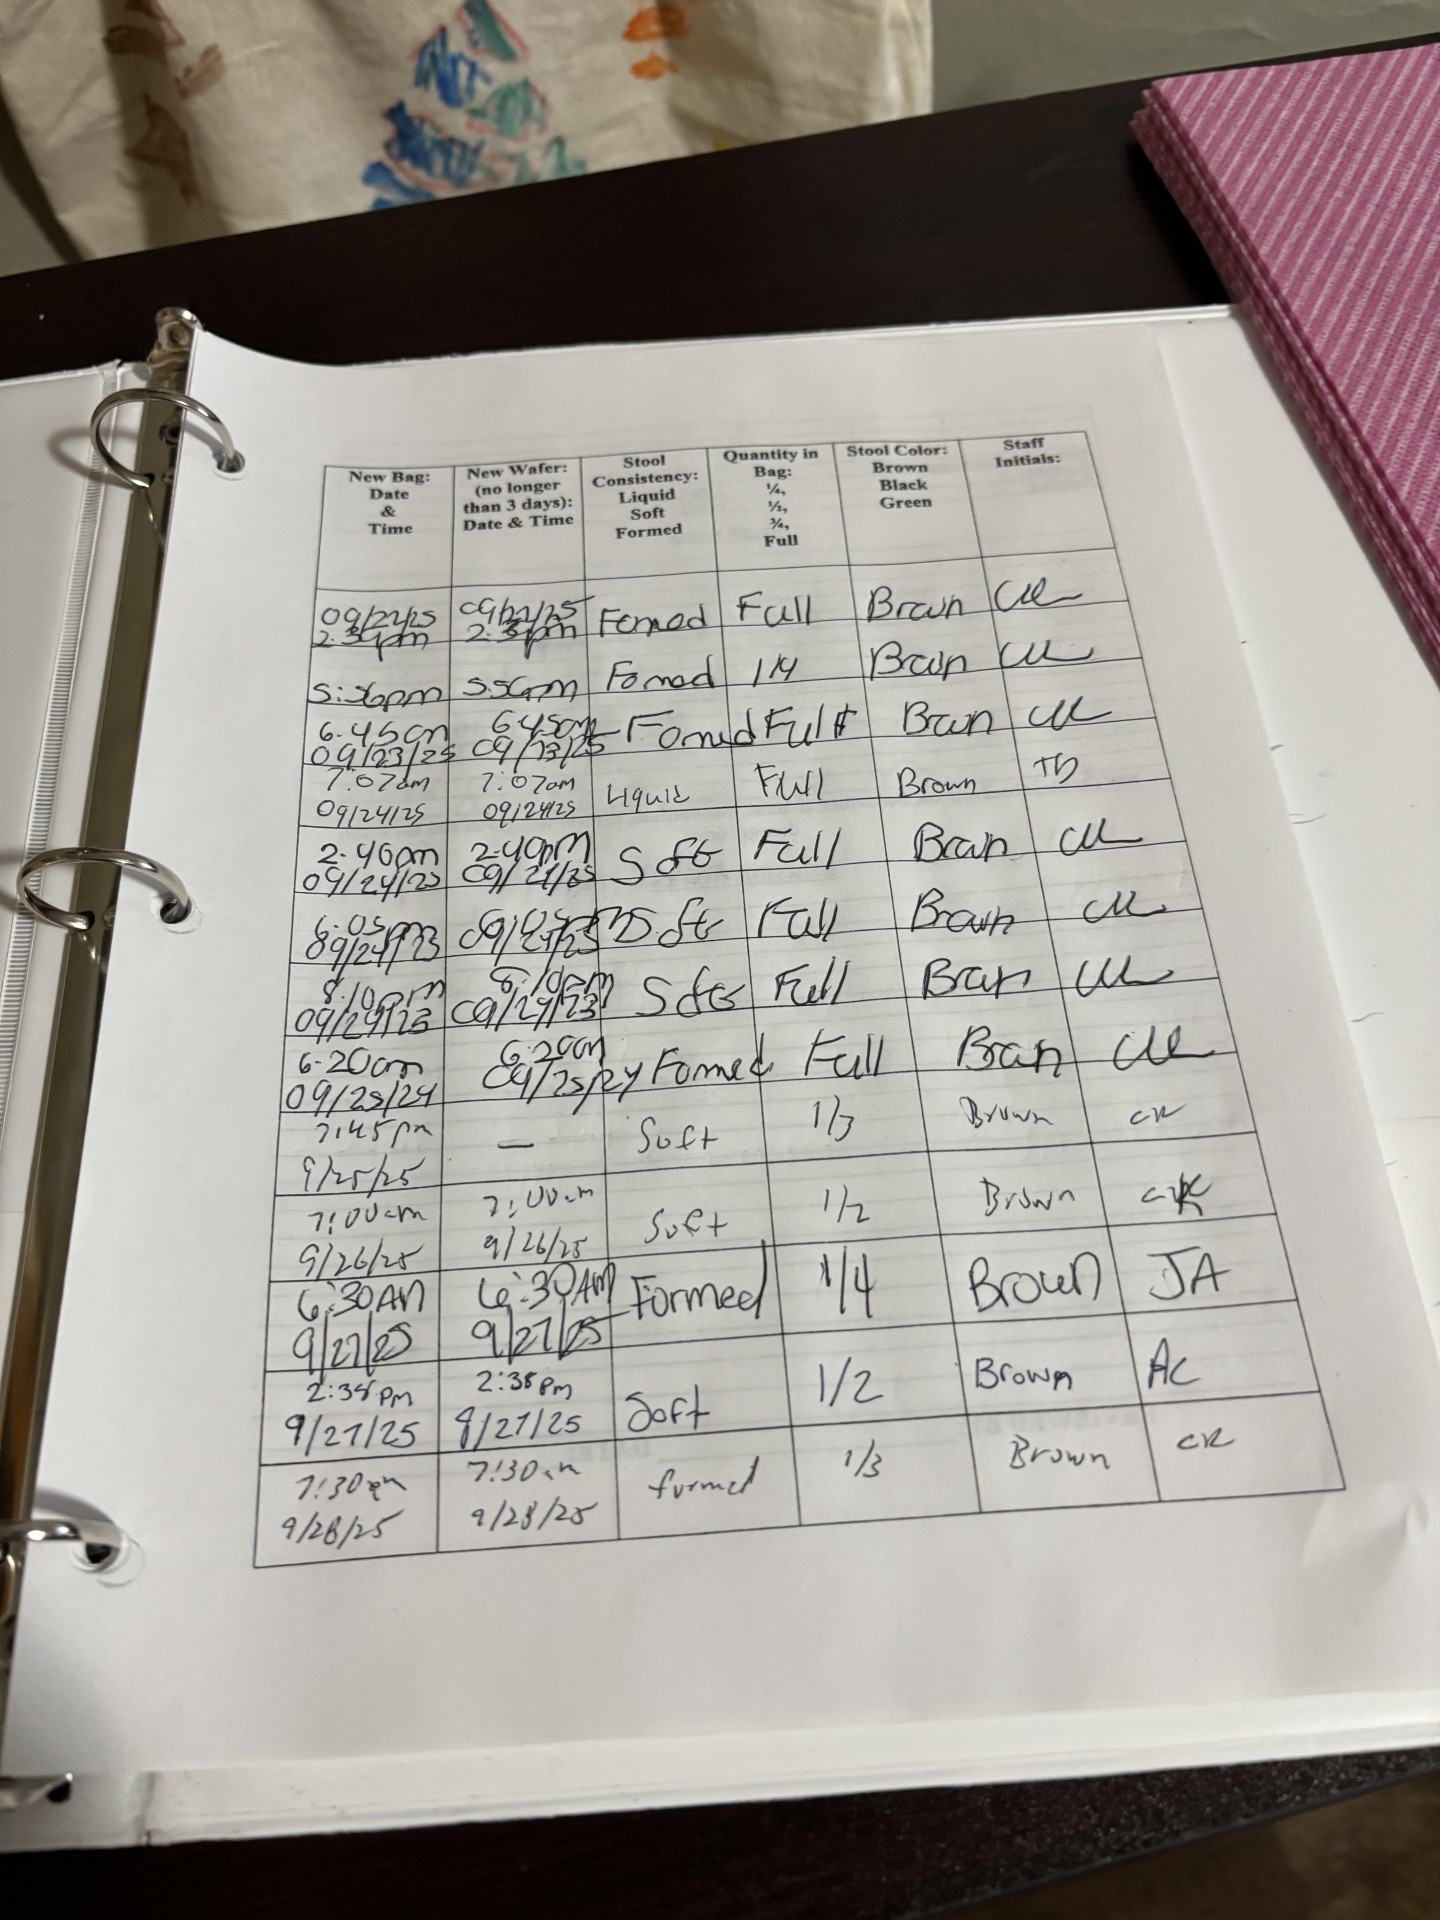 New Bag:
Date
&
Time
New Wafer:
(no longer
than 3 days):
Date & Time
Stool
Consistency:
Liquid
Soft
Formed
Quantity in
Bag:
¼,
½,
¾,
Full
Stool Color:
Brown
Black
Green
Staff
Initials:
09/22/25 09/22/25 Fomed Full Brown
2:34pm 2:34pm
5:56pm 5:56pm Fomed 1/4 Brown
6:45am 6:45am Fomed Full Brown
09/23/25 09/23/25
7:07am 7:07am Liquid Full Brown TB
09/24/25 09/24/25
2:40pm 2:40pm Soft Full Brown
09/24/25 09/24/25
6:05pm Soft Full Brown
8:10pm 8:10pm Soft Full Brown
6:20am 6:20am Fomed Full Brown
09/25/24 09/25/24
7:45pm — Soft 1/3 Brown CK
9/25/25
7:00am 7:00am Soft 1/2 Brown CK
9/26/25 9/26/25
6:30AM 6:30AM Formed 1/4 Brown JA
9/27/25 9/27/25
2:38pm 2:38pm Soft 1/2 Brown AC
9/27/25 9/27/25
7:30am 7:30am formed 1/3 Brown CK
9/28/25 9/28/25